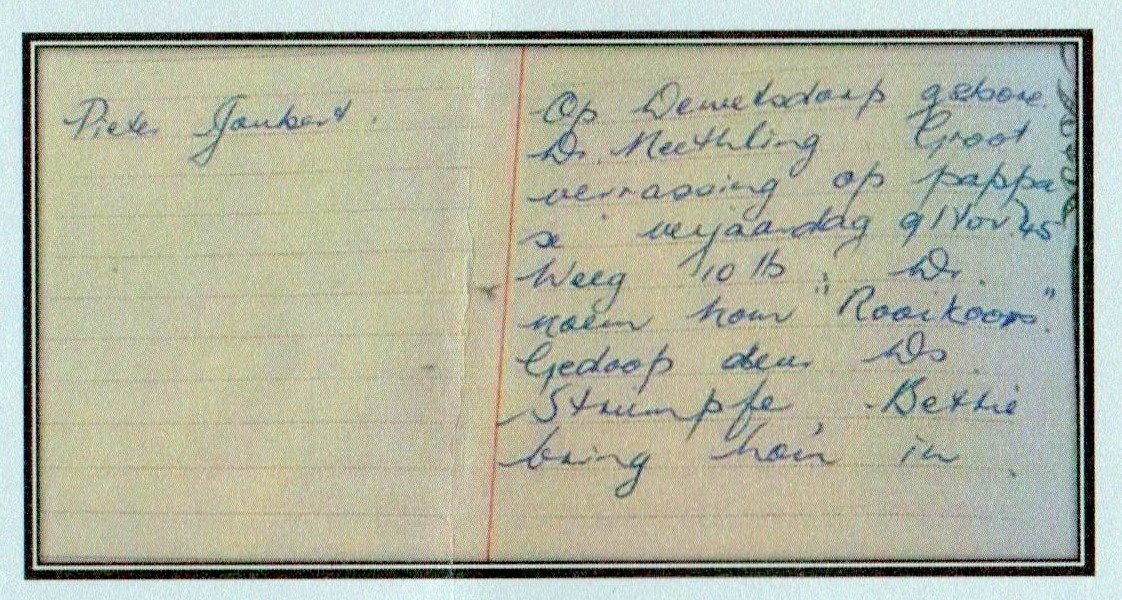 Pieter Joubert.
Op Dewetsdorp gebore.
Dr. Neethling Groot
verrassing op pappa
se verjaardag 9 Nov. 45
Weeg 10 lb. Dr.
noem hom "Rooikoors".
Gedoop deur Ds.
Strumpfe. Bettie
bring hom in.